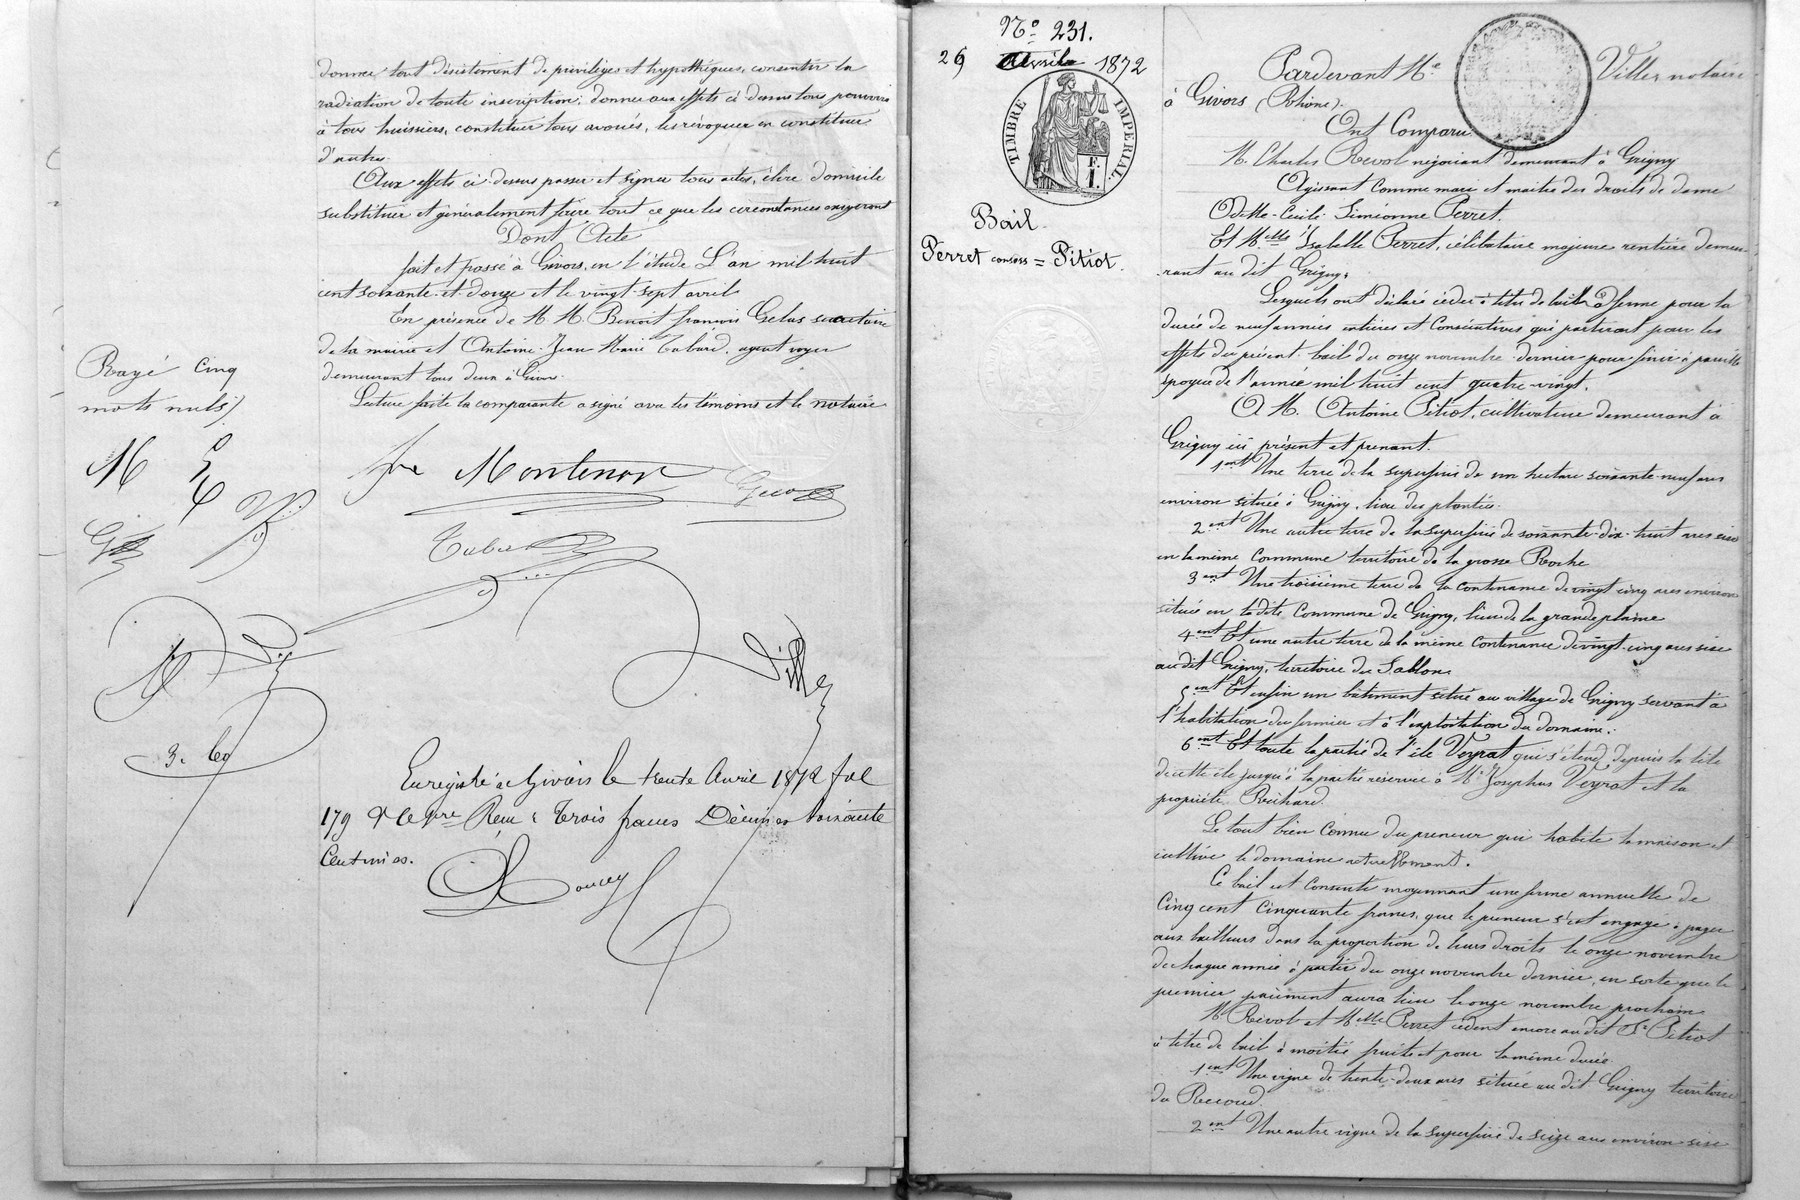 donner tout désistement de privilèges et hypothèques, consentir la
radiation de toute inscription; donner aux effets ci dessus tous pouvoirs
à tous huissiers, constituer tous avoués, les révoquer en constituer
d'autres.
Aux effets ci dessus passer et signer tous actes, élire domicile
substituer et généralement faire tout ce que les circonstances exigeront
Dont Acte
fait et passé à Givors, en l'étude L'an mil huit
cent soixante et douze et le vingt sept avril
En présence de M. M. Benoit françois Gelas secrétaire
de la mairie et Antoine Jean Marie Tabard, agent voyer
demeurant tous deux à Givors.
Lecture faite la comparante a signé avec les témoins et le notaire
Rayé cinq
mots nuls
fne Montenon
Tabard
Ville
Enregistré à Givors le trente Avril 1872 fol
179 Reçu : Trois francs Décimes soixante
Centimes.
No 231.
29 Avril 1872
TIMBRE IMPERIAL.
F. I.
Bail
Perret consors = Pitiot.
Pardevant Me Ville notaire
à Givors (Rhône).
Ont Comparu
M. Charles Revol négociant demeurant à Grigny
Agissant comme mari et maitre des droits de dame
Odette-Cécile-Siméonne Perret.
Et Melle Isabelle Perret, célibataire majeure rentière demeu-
rant au dit Grigny.
Lesquels ont déclaré céder à titre de bail à ferme pour la
durée de neuf années entières et consécutives qui partiront pour les
effets du présent bail du onze novembre dernier pour finir à pareille
époque de l'année mil huit cent quatre-vingt.
A M. Antoine Pitiot, cultivateur demeurant à
Grigny ici présent et prenant.
1ent Une terre de la superficie de un hectare soixante-neuf ares
environ située à Grigny, lieu des plantées.
2ent Une autre terre de la superficie de soixante-dix-huit ares sise
en la même commune territoire de la grosse Roche
3ent Une troisième terre de la contenance de vingt cinq ares environ
située en la dite Commune de Grigny, lieu de la grande plaine
4ent Et une autre terre de la même contenance de vingt-cinq ares sise
au dit Grigny, territoire du Sablon.
5ent Et enfin un bâtiment situé au village de Grigny servant à
l'habitation du fermier et à l'exploitation du domaine.
6ent Et toute la partie de l'île Veyrat qui s'étend depuis la tête
de cette île jusqu'à la partie réservée à Mr Josephus Veyrat et la
propriété Richard.
Le tout bien connu du preneur qui habite la maison et
cultive le domaine actuellement.
Ce bail est consenti moyennant une ferme annuelle de
Cinq cent cinquante francs, que le preneur s'est engagé à payer
aux bailleurs dans la proportion de leurs droits le onze novembre
de chaque année à partir du onze novembre dernier, en sorte que le
premier paiement aura lieu le onze novembre prochain
Mr Revol et Melle Perret cèdent encore au dit Sr Pitiot
à titre de bail à moitié fruits et pour la même durée.
1ent Une vigne de trente-deux ares située au dit Grigny territoire
du Recoud.
2ent Une autre vigne de la superficie de seize ares environ sise